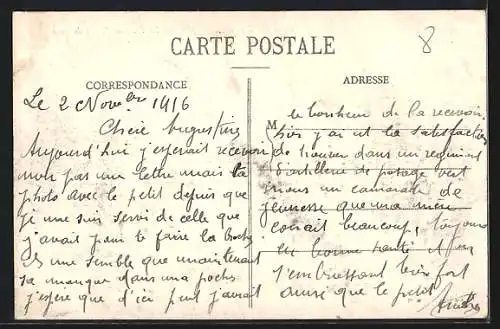 CARTE POSTALE
8
CORRESPONDANCE
ADRESSE
Le 2 Novembre 1916
Chère Augustine
Aujourd'hui j'esperait recevoir
non pas une lettre mais la
photo avec le petit depuis que
je me suis servi de celle que
j'avait pour faire la
il me semble que maintenant
sa manque dans ma poche
j'espère que d'ici peut j'aurait
le bonheur de la recevoir,
M
hier j'ai ut la satisfaction
de trouver dans un regiment
d'artillerie de passage
un camarade de
jeunesse que ma mère
conait beaucoup, toujours
en bonne santé
t'embrassant bien fort
ainsi que le petit